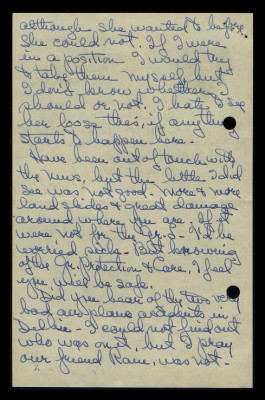 although she wanted to before
she could not. If I were
in a position I would try
to take them myself, but
I don't know whether I
should or not. I hate to see
her loose this, if anything
starts to happen here.
Have been out of touch with
the news, but the little I did
see was not good. More & more
land slides & great damage
around where you are. If it
were not for the I'd be
worried sick. But knowing
of the Gr. Protection & Care, I feel
you will be safe.
Did you hear of the two very
bad airplane accidents in
Dublin - I could not find out
who was on it, but I pray
our friend was not -